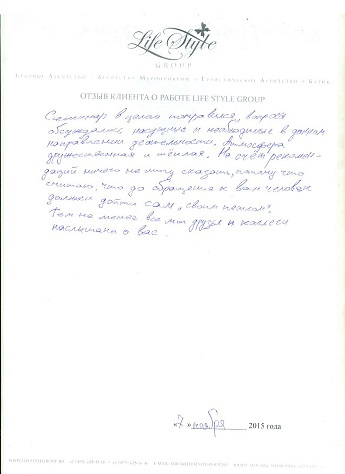 Life Style
GROUP
Брачное Агентство • Агентство Мероприятий • Туристическое Агентство •
ОТЗЫВ КЛИЕНТА О РАБОТЕ LIFE STYLE GROUP
Семинар в целом понравился, вопросы
обсуждались насущные и необходимые в данном
направлении деятельности. Атмосфера
дружественная и тёплая. На счёт рекомен-
даций ничего не могу сказать, потому что
считаю, что до обращения к вам человек
должен дойти сам, "своим
Тем не менее все мои друзья и коллеги
наслышаны о вас.
«7» ноября 2015 года